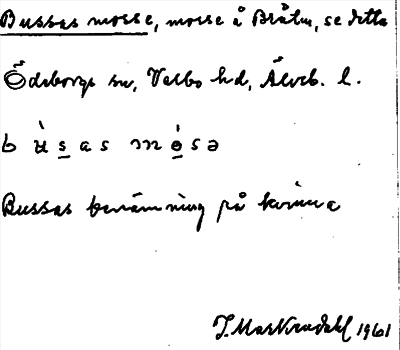 Bussas mosse, mosse å Bråten, se detta
Ödeborgs sn, Valbo hd, Älvsb. l.
b ù s a s m ó s ə
Bussas benämning på kvinna
J. Markendahl 1961